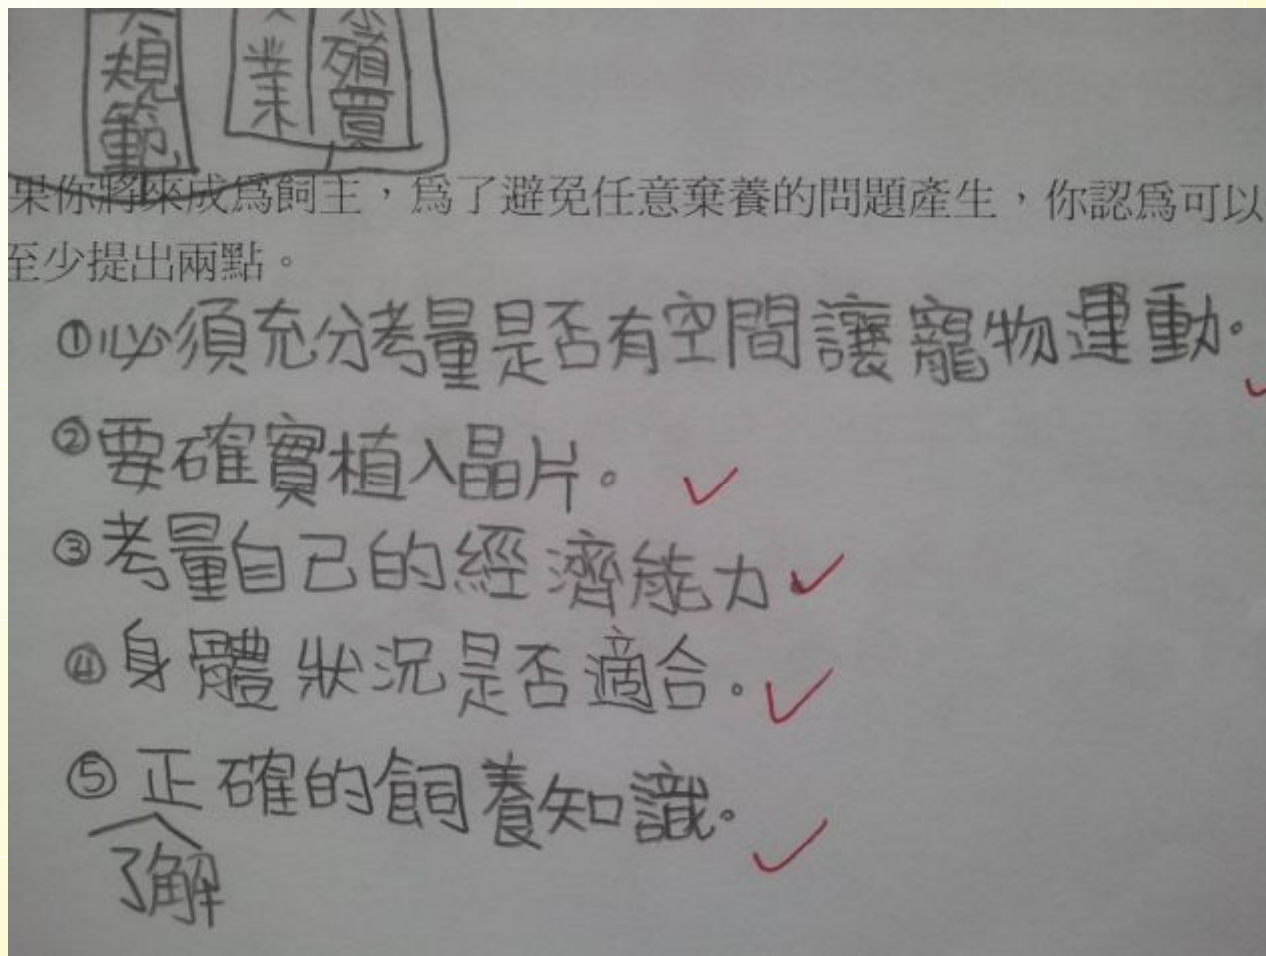 規範
業
殖買
果你將來成為飼主，為了避免任意棄養的問題產生，你認為可以
至少提出兩點。
①必須充分考量是否有空間讓寵物運動。
②要確實植入晶片。
③考量自己的經濟能力
④身體狀況是否適合。
⑤正確的飼養知識。
了解